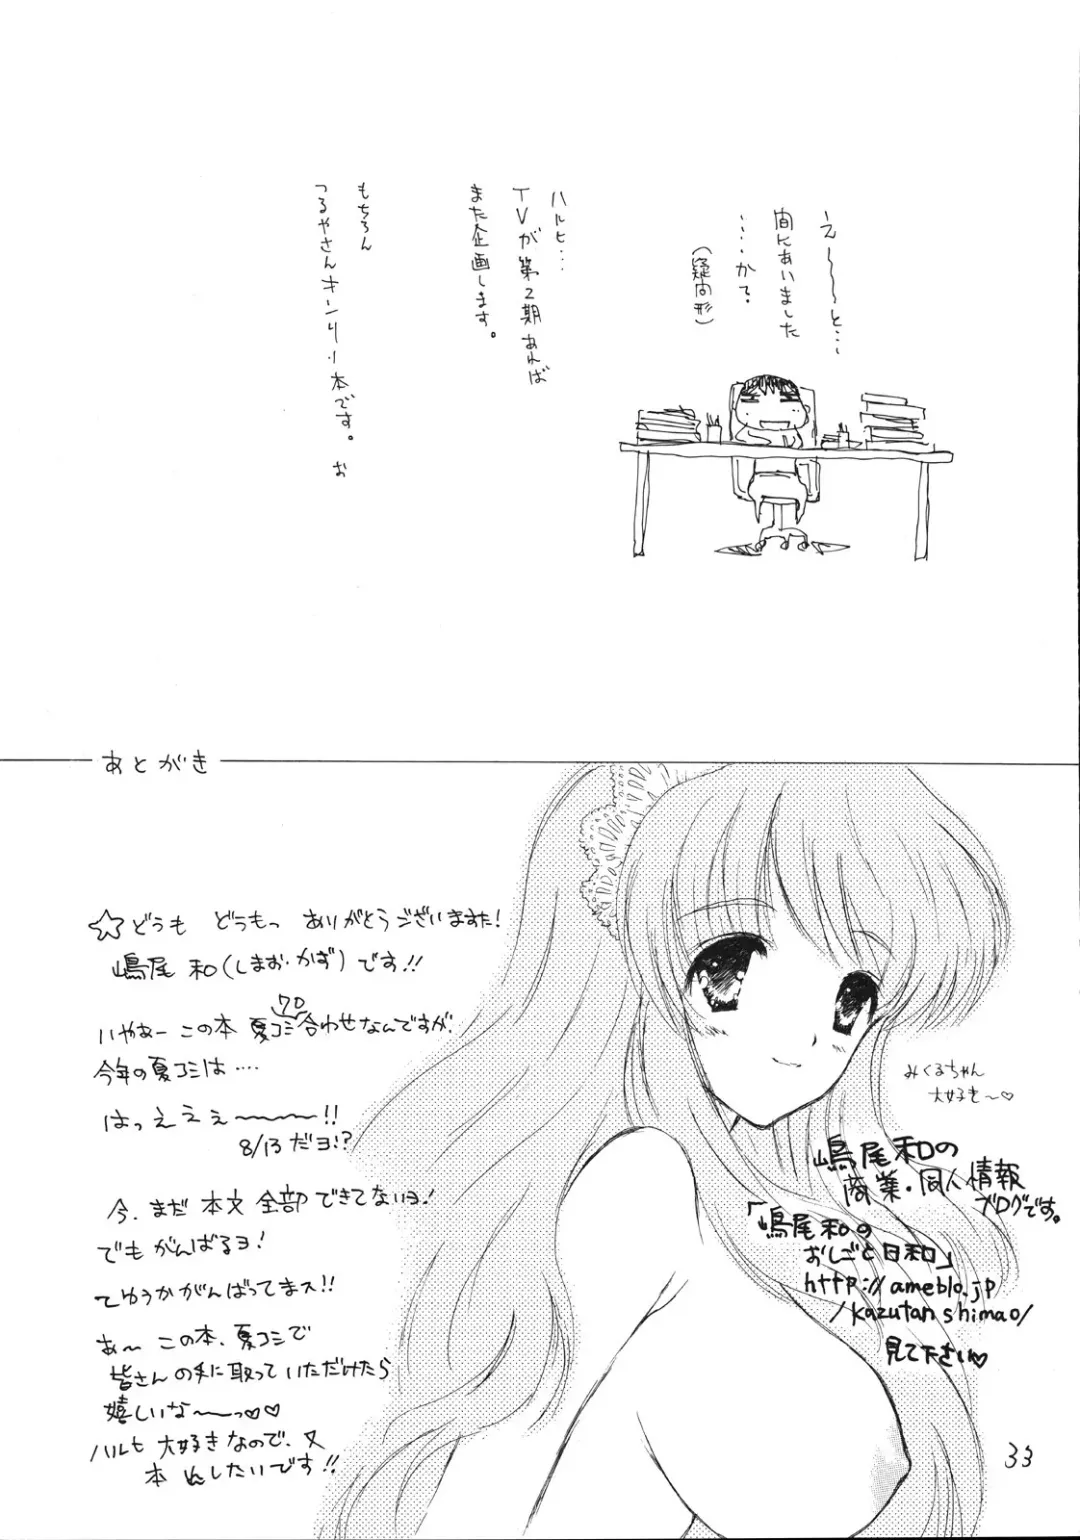 えーーーと…
間にあいました
…かて?
(疑問形)
ハルヒ…
TVが第2期あれば
また企画します。
もちろん
つるやさんオンリー本です。 お
あとがき
☆どうも どうもっ ありがとうございますた!
嶋尾 和(しまお・かず)です!!
いやぁー この本 夏コミ70合わせなんですが、
今年の夏コミは‥‥
はっえぇぇ〜〜〜〜!!
8/13だヨ!?
今、まだ 本文 全部 できてないヨ!
でも がんばるヨ!
てゆうか がんばってまス!!
あ〜 この本、夏コミで
皆さんの手に取っていただけたら
嬉しいな〜〜っ♡♡
ハルヒ 大好きなので、又
本 したいです!!
みくるちゃん
大好き〜♡
嶋尾和の
商業・同人情報
ブログです。
「嶋尾和の
おしごと日和」
http://ameblo.jp
/kazutanshimao/
見て下さい♡
33